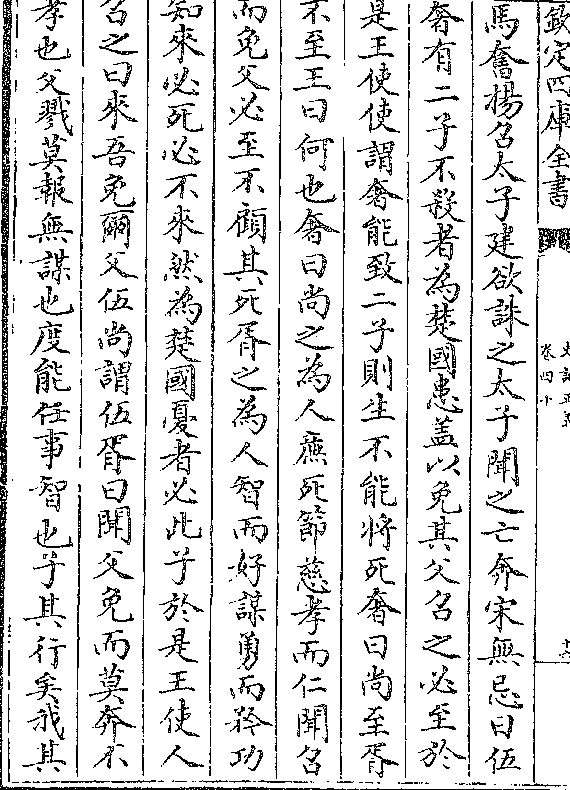 欽定四庫全書
史記正義
卷四十
馬奮揚召太子建欲誅之太子聞之亡奔宋無忌曰伍
奢有二子不殺者為楚國患蓋以免其父召之必至於
是王使使謂奢能致二子則生不能將死奢曰尚至胥
不至王曰何也奢曰尚之為人廉死節慈孝而仁聞召
而免父必至不顧其死胥之為人智而好謀勇而矜功
知來必死必不來然為楚國憂者必此子於是王使人
召之曰來吾免爾父伍尚謂伍胥曰聞父免而莫奔不
孝也父戮莫報無謀也度能任事智也子其行矣我其